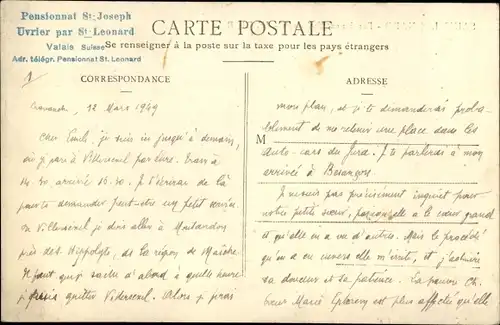 Pensionnat St-Joseph
Uvrier par St-Leonard
Valais Suisse
Adr. télégr. Pensionnat St. Leonard
CARTE POSTALE
Se renseigner à la poste sur la taxe pour les pays étrangers
CORRESPONDANCE
ADRESSE
12 Mars 1949
Cher Emile, je suis ici jusqu'à demain,
où je pars à Villersexel par Lure. Train à
14.30 arrivée 16.30. J t'écrirai de là
pour te demander peut-être un petit service
En Villersexel je dois aller à Montandon
près de St Hippolyte, de la région de Maîche.
Il faut que je sache d'abord à quelle heure
je puis quitter Villersexel. Alors je ferais
mon plan, et je te demanderai proba-
blement de me retenir une place dans les
M
auto-cars du Jura. J te parlerai à mon
arrivée à Besançon.
J ne suis pas précisément inquiet pour
notre petite sœur, parce qu'elle a le cœur grand
et qu'elle en a vu d'autres. Mais le procédé
qu'on a eu envers elle m'irrite, et j'admire
sa douceur et sa patience. La pauvre Ch.
Sœur Marie est plus affectée qu'elle